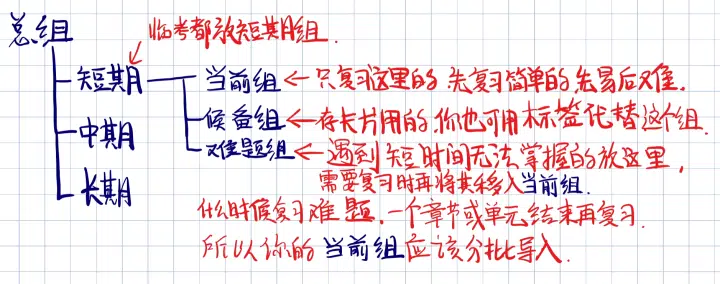 总组
临考都放短期组.
短期
当前组←只复习这里的 先复习简单的 先易后难.
候备组←存长片用的,你也可用标签代替这个组.
中期
难题组←遇到短时间无法掌握的放这里,
需要复习时再将其移入当前组.
长期
什么时候复习难题,一个章节或单元结束再复习.
所以你的当前组应该分批导入.